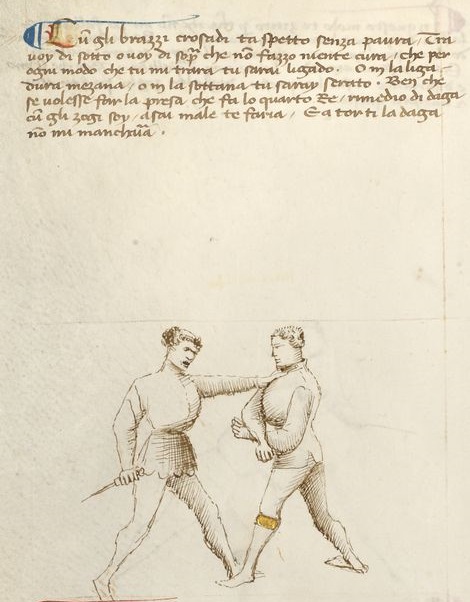 Cũ gli brazzi crosadi ta spetto senza paura / Tra
voy di sotto o voy di sop̃ che nõ fazzo niente cura / che per
ogni modo che tu mi trara tu sarai ligado. O in la liga
dura mezana / o in la sottana tu saray serato. Ben che
se volesse far la presa che fa lo quarto Re / rimedio di daga
cũ gli zogi soy / asai male te faria / E a torti la daga
nõ mi mancharia.